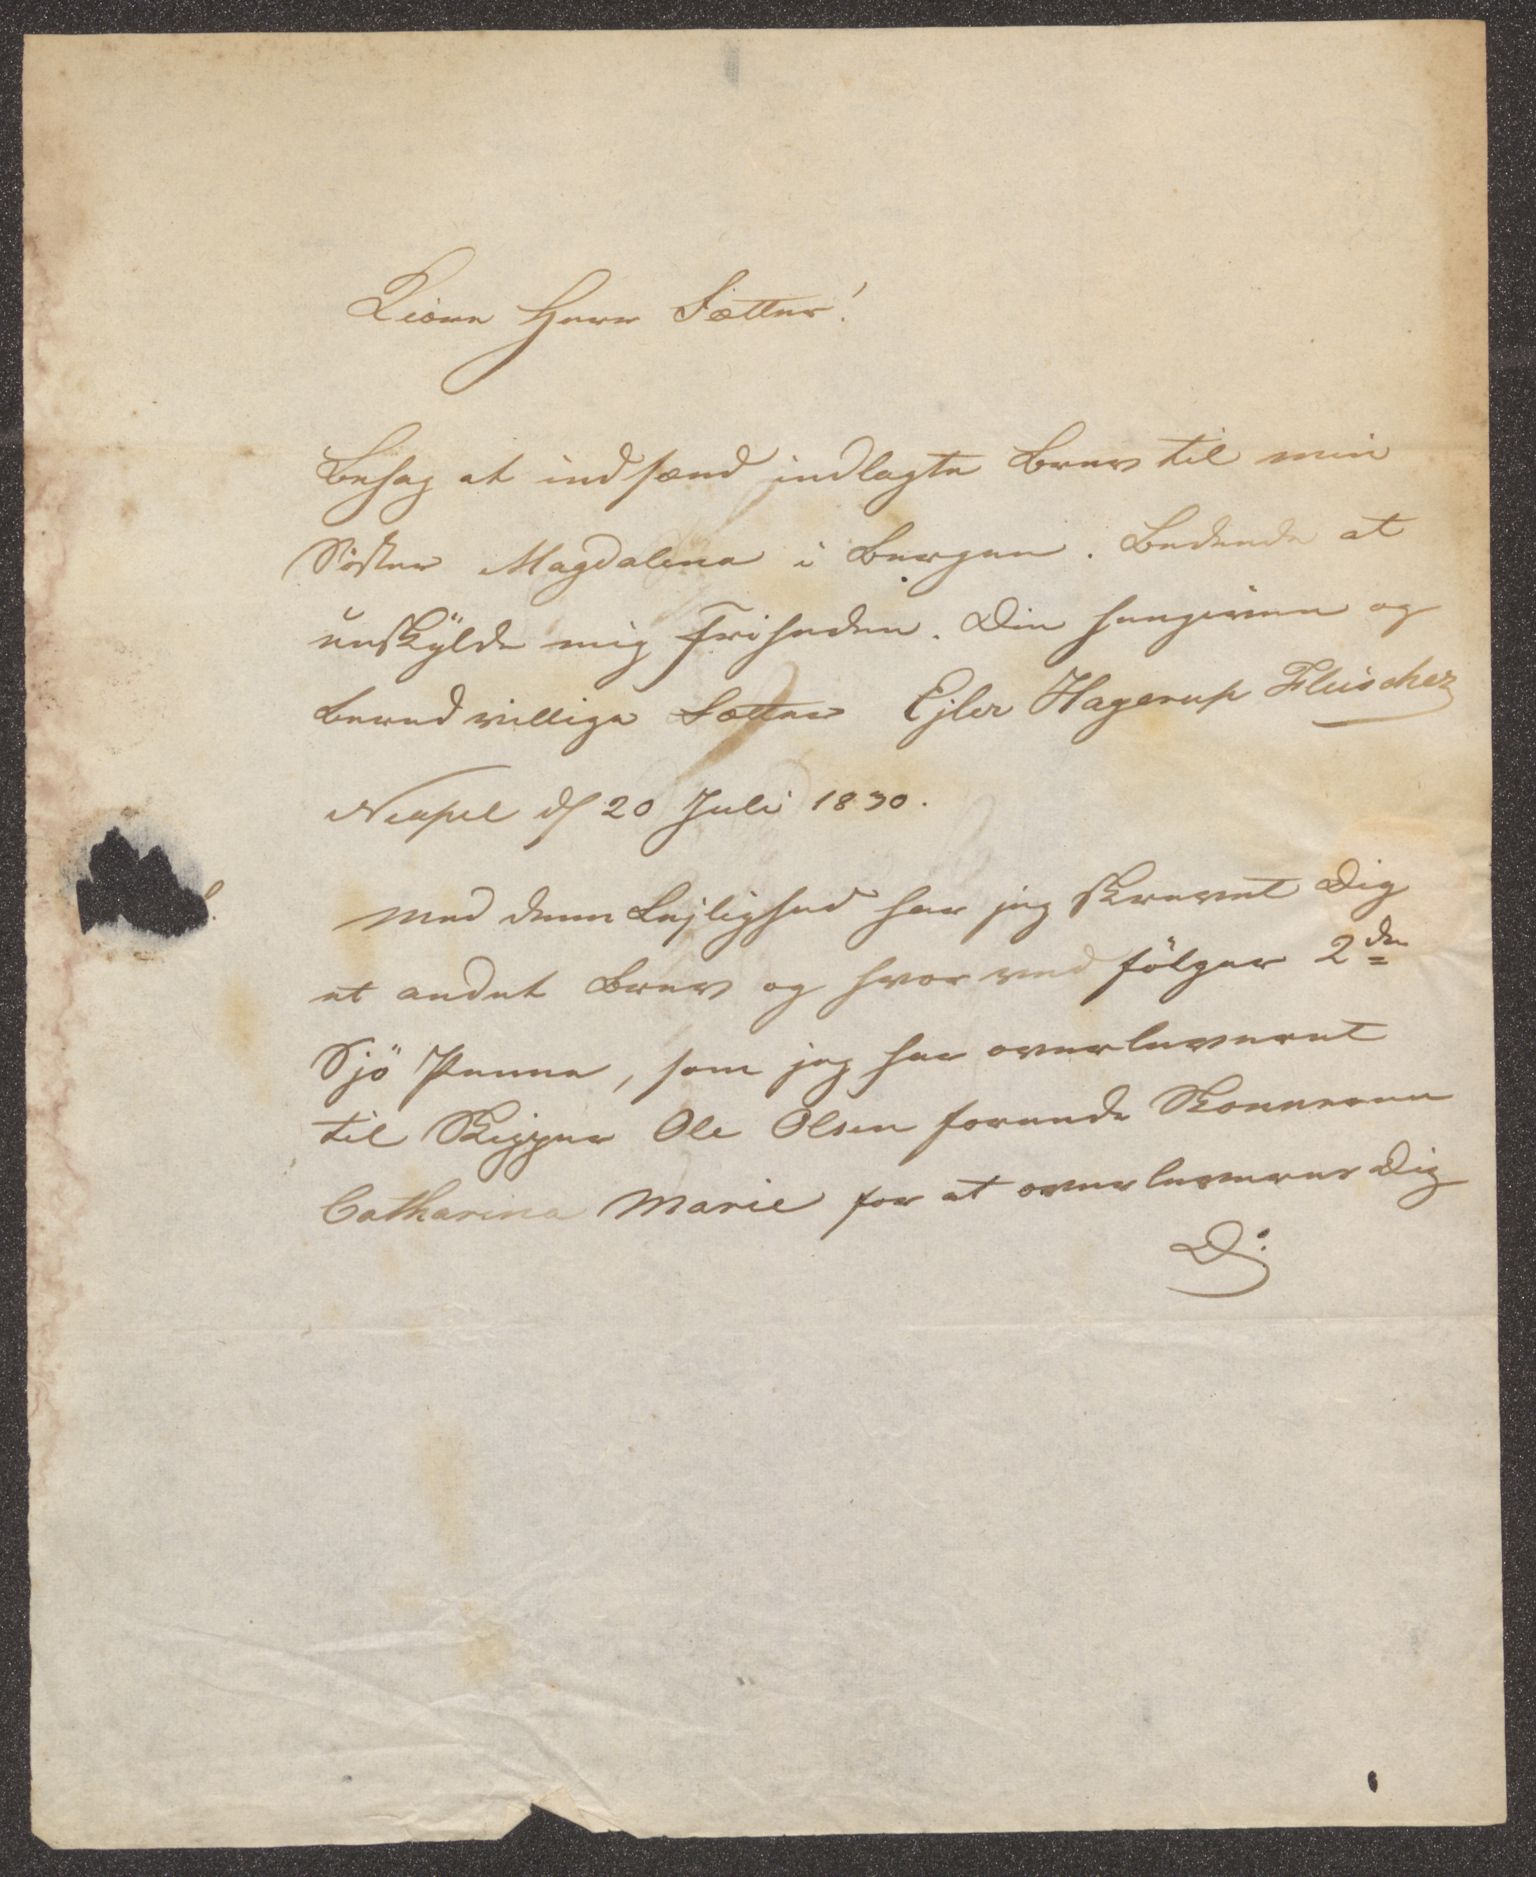 Kiöre Herr Fætter!
Behag at indsænd indlagte Brev til min
Söster Magdalena i Bergen. Bedende at
unskÿlde mig Friheden. Din hengivne og
beredvillige Fætter Ejler Hagerup Fleischer
Neapel d 20 Juli 1830.
Med denne Lejlighed har jeg skrevet Dig
et andet Brev og hvorved fölger 2de
Sjö Penne, som jeg har overleveret
til Skipper Ole Olsen förende Skonneren
Catharina Marie for at overleveres Dig
D: